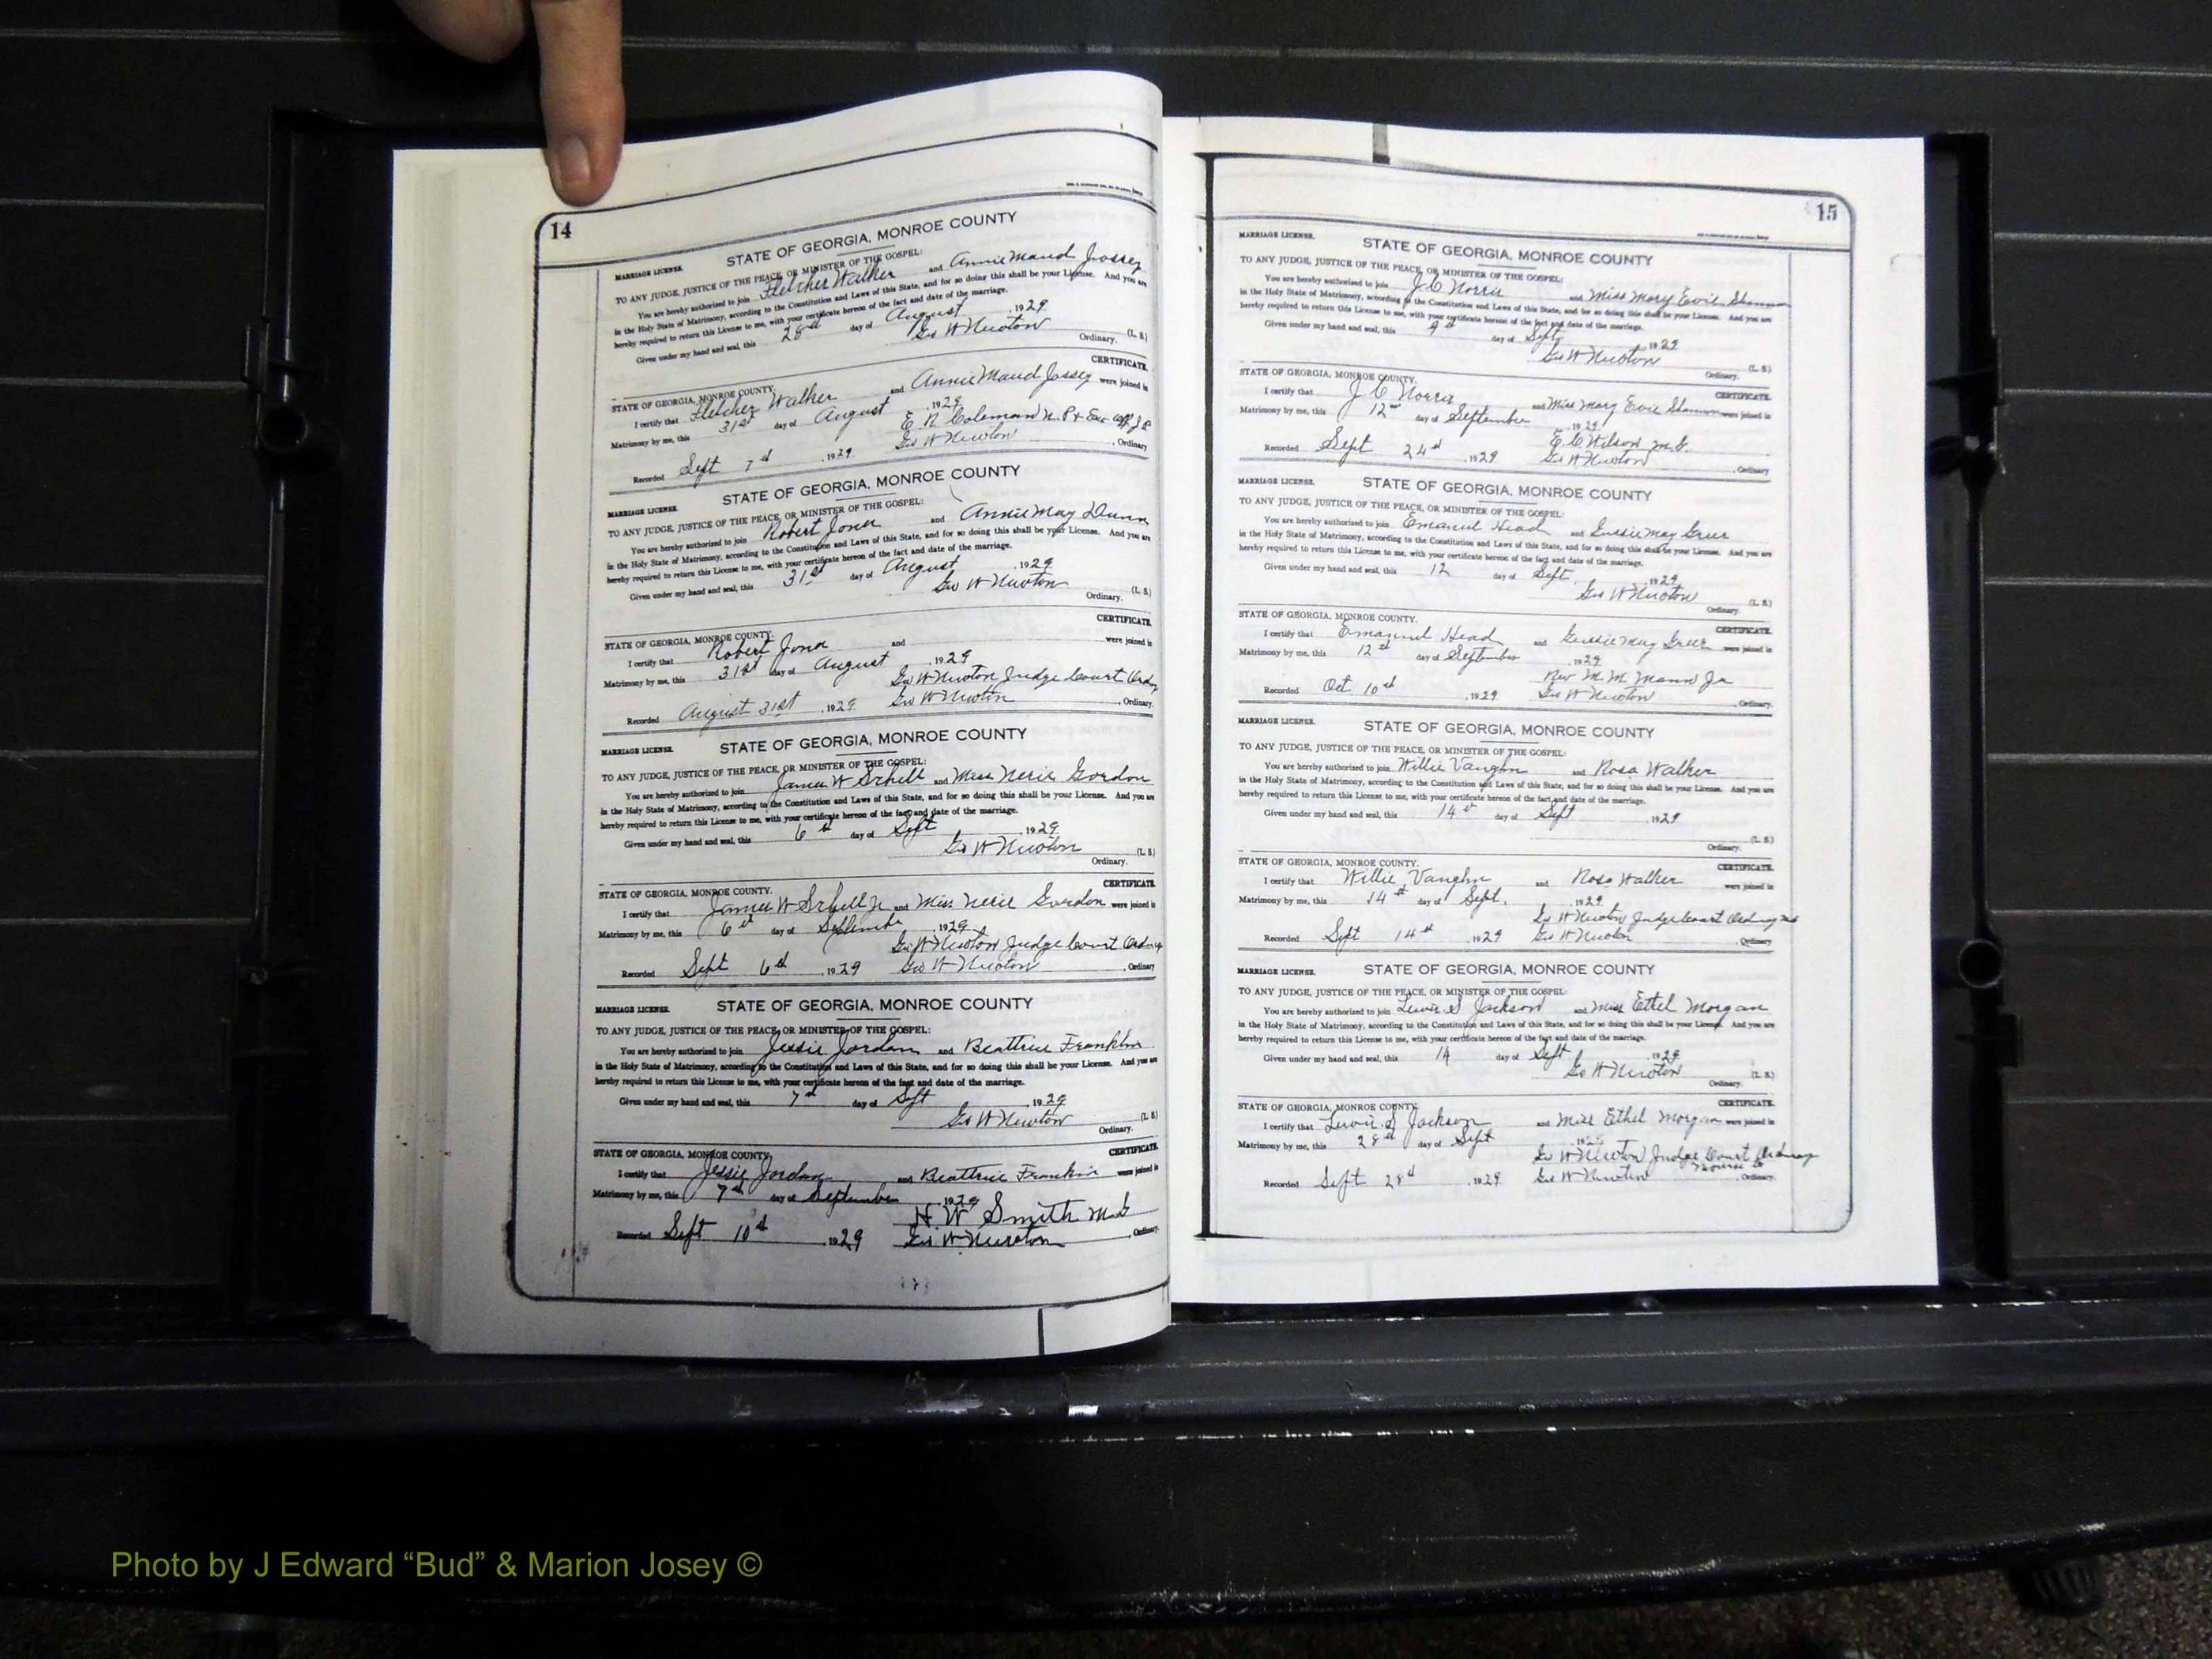 14
MARRIAGE LICENSE. STATE OF GEORGIA, MONROE COUNTY
TO ANY JUDGE, JUSTICE OF THE PEACE, OR MINISTER OF THE GOSPEL:
You are hereby authorized to join Fletcher Walker and Annie Maud Jossey
in the Holy State of Matrimony, according to the Constitution and Laws of this State, and for so doing this shall be your License. And you are
hereby required to return this License to me, with your certificate hereon of the fact and date of the marriage.
Given under my hand and seal, this 28th day of August, 1929
Geo W Newton (L. S.)
Ordinary.
CERTIFICATE.
STATE OF GEORGIA, MONROE COUNTY.
I certify that Fletcher Walker and Annie Maud Jossey were joined in
Matrimony by me, this 31st day of August, 1929
E. N. Coleman N. P. & Exo off J P
Recorded Sept 7th, 1929 Geo W Newton, Ordinary
MARRIAGE LICENSE. STATE OF GEORGIA, MONROE COUNTY
TO ANY JUDGE, JUSTICE OF THE PEACE, OR MINISTER OF THE GOSPEL:
You are hereby authorized to join Robert Jones and Annie May Dunn
in the Holy State of Matrimony, according to the Constitution and Laws of this State, and for so doing this shall be your License. And you are
hereby required to return this License to me, with your certificate hereon of the fact and date of the marriage.
Given under my hand and seal, this 31st day of August, 1929
Geo W Newton (L. S.)
Ordinary.
CERTIFICATE.
STATE OF GEORGIA, MONROE COUNTY.
I certify that Robert Jones and were joined in
Matrimony by me, this 31st day of August, 1929
Geo W Newton Judge Court Ordny
Recorded August 31st, 1929 Geo W Newton, Ordinary.
MARRIAGE LICENSE. STATE OF GEORGIA, MONROE COUNTY
TO ANY JUDGE, JUSTICE OF THE PEACE, OR MINISTER OF THE GOSPEL:
You are hereby authorized to join James W and Miss Nerie Gordon
in the Holy State of Matrimony, according to the Constitution and Laws of this State, and for so doing this shall be your License. And you are
hereby required to return this License to me, with your certificate hereon of the fact and date of the marriage.
Given under my hand and seal, this 6th day of Sept, 1929
Geo W Newton (L. S.)
Ordinary.
CERTIFICATE.
STATE OF GEORGIA, MONROE COUNTY.
I certify that James W Jr and Miss Nerie Gordon were joined in
Matrimony by me, this 6th day of September, 1929
Geo W Newton Judge Court Ordny
Recorded Sept 6th, 1929 Geo W Newton, Ordinary
MARRIAGE LICENSE. STATE OF GEORGIA, MONROE COUNTY
TO ANY JUDGE, JUSTICE OF THE PEACE, OR MINISTER OF THE GOSPEL:
You are hereby authorized to join Jessie Jordan and Beattrice Franklin
in the Holy State of Matrimony, according to the Constitution and Laws of this State, and for so doing this shall be your License. And you are
hereby required to return this License to me, with your certificate hereon of the fact and date of the marriage.
Given under my hand and seal, this 7th day of Sept, 1929
Geo W Newton (L. S.)
Ordinary.
CERTIFICATE.
STATE OF GEORGIA, MONROE COUNTY.
I certify that Jessie Jordan and Beattrice Franklin were joined in
Matrimony by me, this 7th day of September, 1929
H. W. Smith M G
Recorded Sept 10th, 1929 Geo W Newton, Ordinary.
15
MARRIAGE LICENSE. STATE OF GEORGIA, MONROE COUNTY
TO ANY JUDGE, JUSTICE OF THE PEACE, OR MINISTER OF THE GOSPEL:
You are hereby authorized to join J C Norris and Miss Mary Evie Shannon
in the Holy State of Matrimony, according to the Constitution and Laws of this State, and for so doing this shall be your License. And you are
hereby required to return this License to me, with your certificate hereon of the fact and date of the marriage.
Given under my hand and seal, this 9th day of Sept, 1929
Geo W Newton (L. S.)
Ordinary.
CERTIFICATE.
STATE OF GEORGIA, MONROE COUNTY.
I certify that J C Norris and Miss Mary Evie Shannon were joined in
Matrimony by me, this 12th day of September, 1929
E. C. Wilson M. G.
Recorded Sept 24th, 1929 Geo W Newton, Ordinary
MARRIAGE LICENSE. STATE OF GEORGIA, MONROE COUNTY
TO ANY JUDGE, JUSTICE OF THE PEACE, OR MINISTER OF THE GOSPEL:
You are hereby authorized to join Emanuel Head and Gussie May Greer
in the Holy State of Matrimony, according to the Constitution and Laws of this State, and for so doing this shall be your License. And you are
hereby required to return this License to me, with your certificate hereon of the fact and date of the marriage.
Given under my hand and seal, this 12 day of Sept, 1929
Geo W Newton (L. S.)
Ordinary.
CERTIFICATE.
STATE OF GEORGIA, MONROE COUNTY.
I certify that Emanuel Head and Gussie May Greer were joined in
Matrimony by me, this 12th day of September, 1929
Rev M. M. Mann Jr
Recorded Oct 10th, 1929 Geo W Newton, Ordinary.
MARRIAGE LICENSE. STATE OF GEORGIA, MONROE COUNTY
TO ANY JUDGE, JUSTICE OF THE PEACE, OR MINISTER OF THE GOSPEL:
You are hereby authorized to join Willie Vaughn and Rosa Walker
in the Holy State of Matrimony, according to the Constitution and Laws of this State, and for so doing this shall be your License. And you are
hereby required to return this License to me, with your certificate hereon of the fact and date of the marriage.
Given under my hand and seal, this 14th day of Sept, 1929
(L. S.)
Ordinary.
CERTIFICATE.
STATE OF GEORGIA, MONROE COUNTY.
I certify that Willie Vaughn and Rosa Walker were joined in
Matrimony by me, this 14th day of Sept., 1929
Geo W Newton Judge Court Ordny
Recorded Sept 14th, 1929 Geo W Newton, Ordinary
MARRIAGE LICENSE. STATE OF GEORGIA, MONROE COUNTY
TO ANY JUDGE, JUSTICE OF THE PEACE, OR MINISTER OF THE GOSPEL:
You are hereby authorized to join Lewis S Jackson and Miss Ethel Morgan
in the Holy State of Matrimony, according to the Constitution and Laws of this State, and for so doing this shall be your License. And you are
hereby required to return this License to me, with your certificate hereon of the fact and date of the marriage.
Given under my hand and seal, this 14 day of Sept, 1929
Geo W Newton (L. S.)
Ordinary.
CERTIFICATE.
STATE OF GEORGIA, MONROE COUNTY.
I certify that Lewis S Jackson and Miss Ethel Morgan were joined in
Matrimony by me, this 28th day of Sept
Geo W Newton Judge Court Ordinary
Monroe Co
Recorded Sept 28th, 1929 Geo W Newton, Ordinary.
Photo by J Edward “Bud” & Marion Josey ©